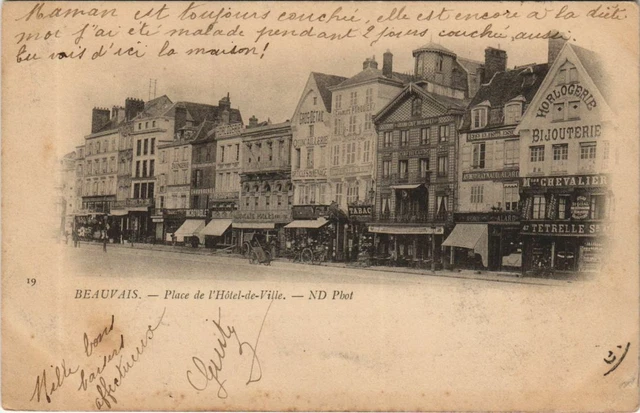 Maman est toujours couchée, elle est encore à la diète
moi j'ai été malade pendant 2 jours couchée aussi.
Tu vois d'ici la maison!
HORLOGERIE
BIJOUTERIE
GROS & DETAIL
TABAC
Mson CHEVALIER
TETRELLE Sr
19
BEAUVAIS. — Place de l'Hôtel-de-Ville. — ND Phot
Mille bons
baisers
affectueux